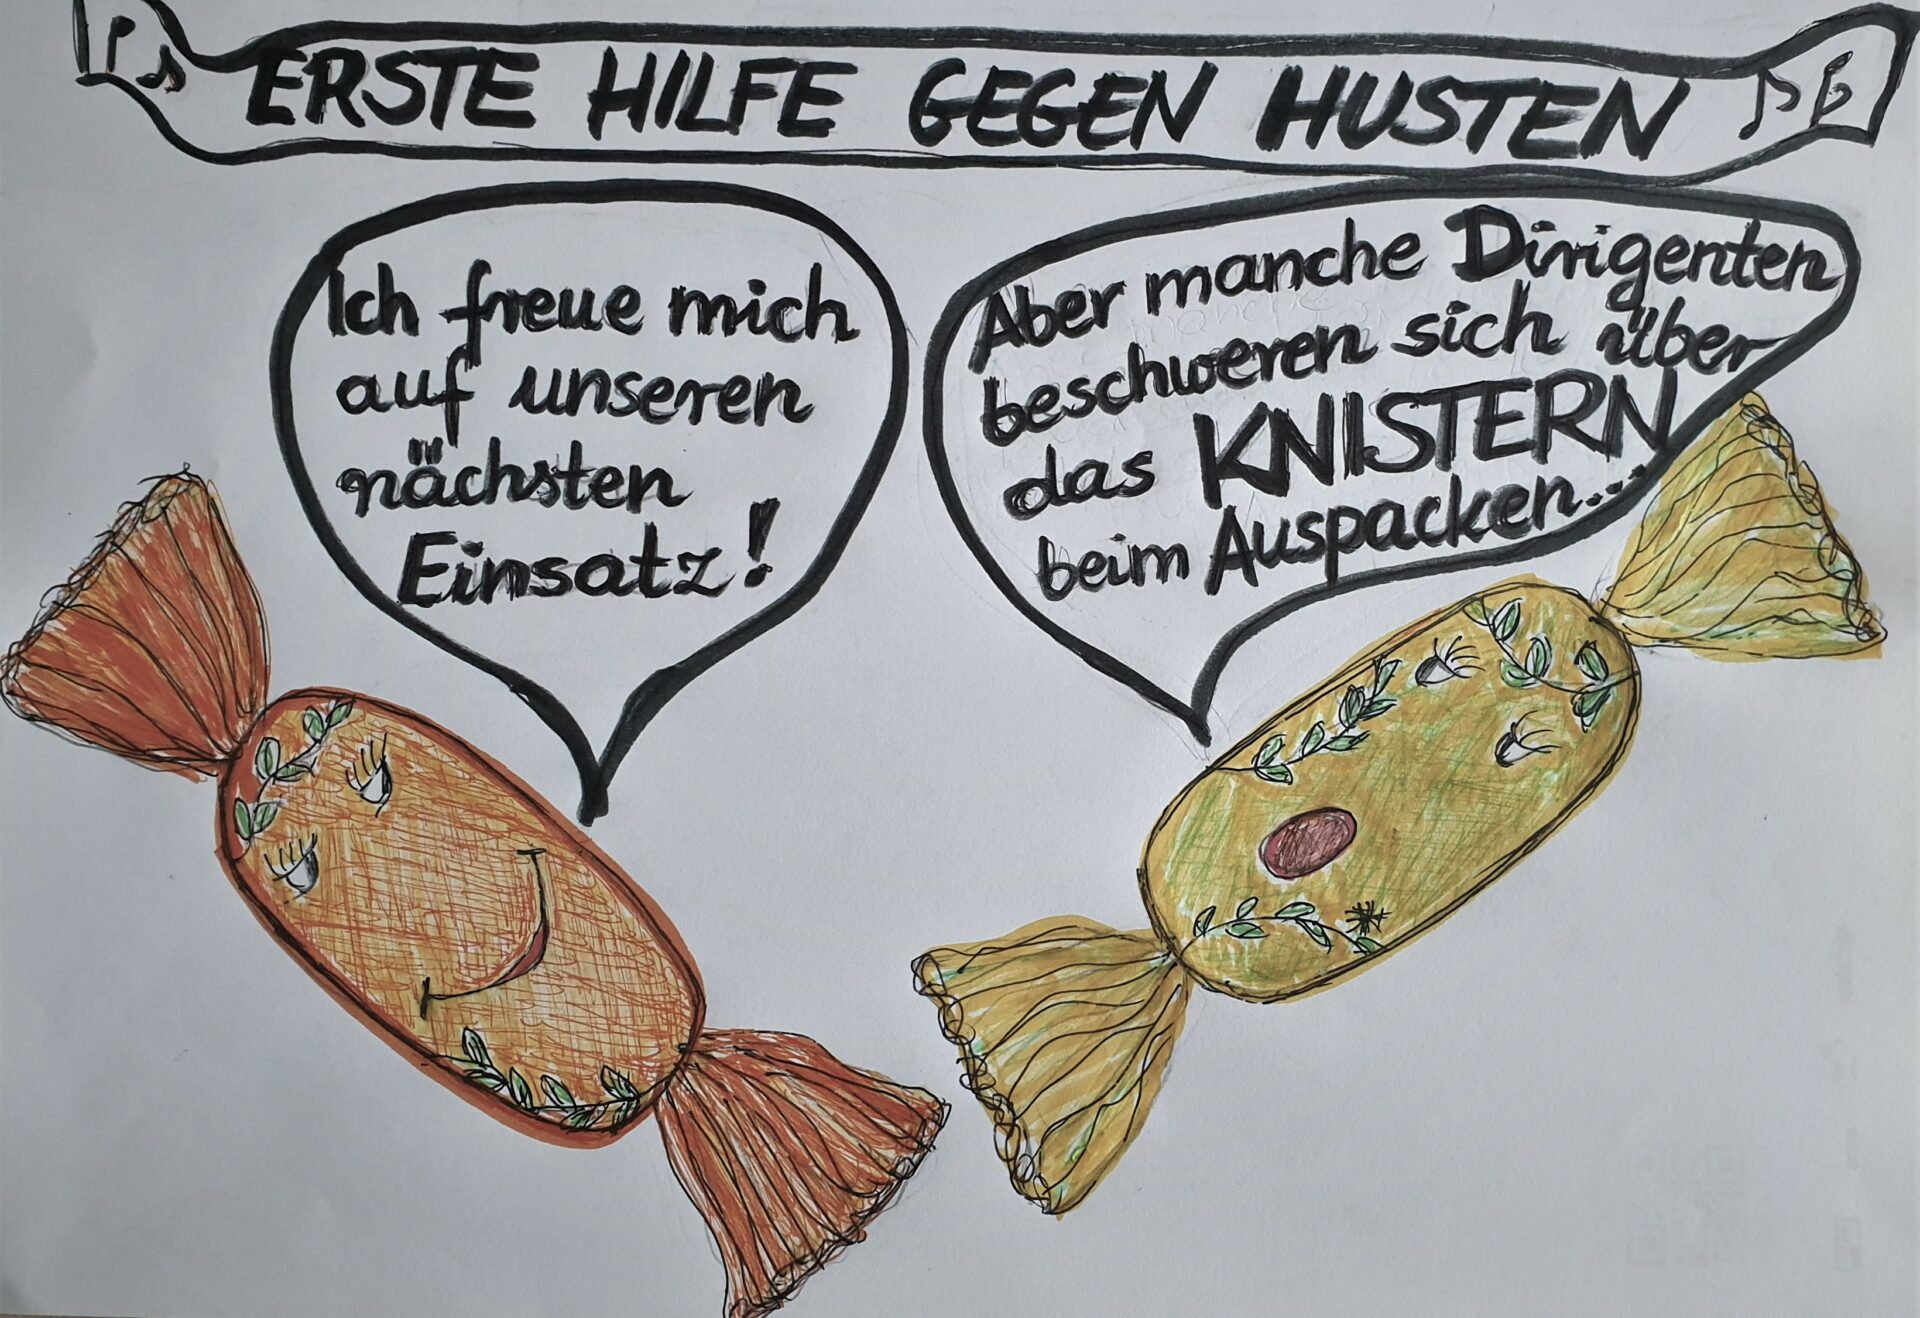 ERSTE HILFE GEGEN HUSTEN
Ich freue mich
auf unseren
nächsten
Einsatz!
Aber manche Dirigenten
beschweren sich über
das KNISTERN
beim Auspacken...